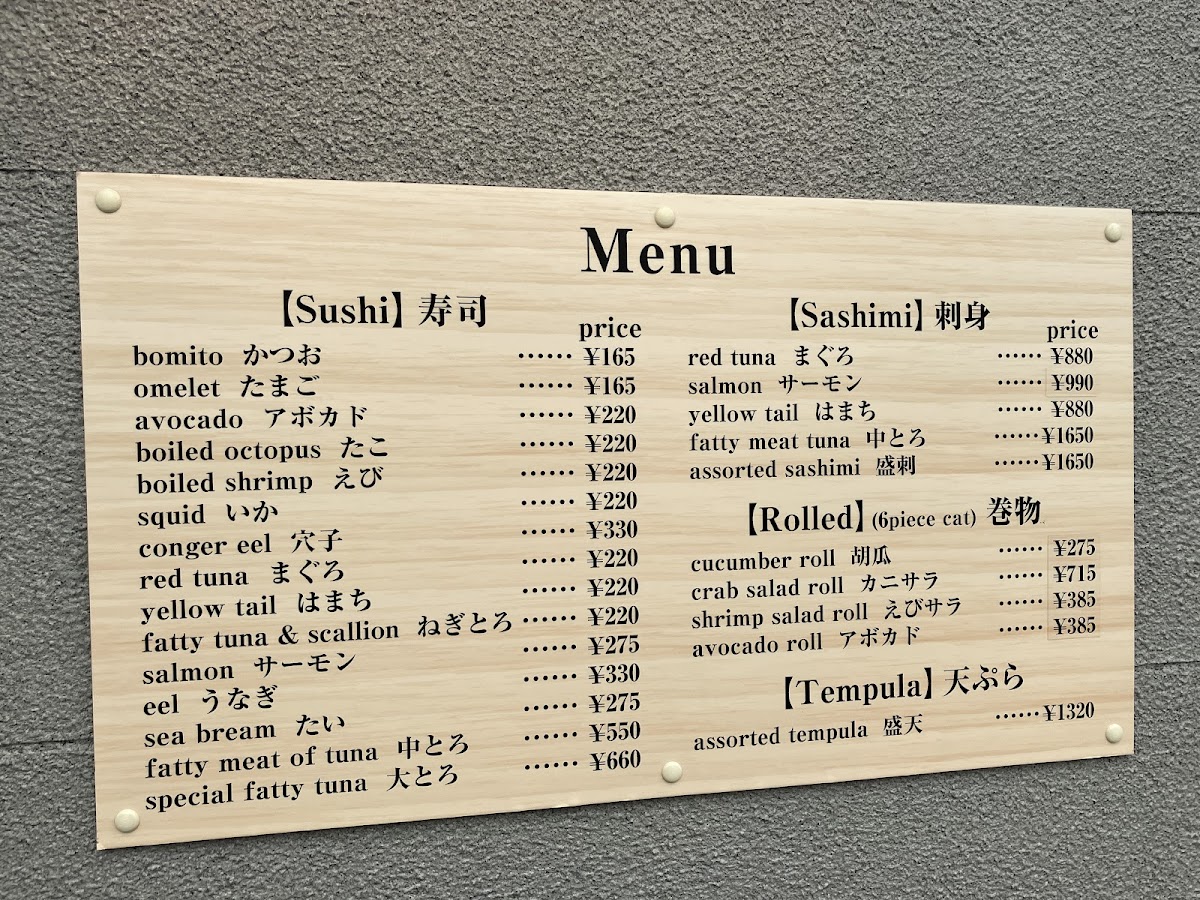 Menu
【Sushi】 寿司
price
bomito かつお ・・・・・・ ¥165
omelet たまご ・・・・・・ ¥165
avocado アボカド ・・・・・・ ¥220
boiled octopus たこ ・・・・・・ ¥220
boiled shrimp えび ・・・・・・ ¥220
squid いか ・・・・・・ ¥220
conger eel 穴子 ・・・・・・ ¥330
red tuna まぐろ ・・・・・・ ¥220
yellow tail はまち ・・・・・・ ¥220
fatty tuna & scallion ねぎとろ ・・・・・・ ¥220
salmon サーモン ・・・・・・ ¥275
eel うなぎ ・・・・・・ ¥330
sea bream たい ・・・・・・ ¥275
fatty meat of tuna 中とろ ・・・・・・ ¥550
special fatty tuna 大とろ ・・・・・・ ¥660
【Sashimi】 刺身
price
red tuna まぐろ ・・・・・・ ¥880
salmon サーモン ・・・・・・ ¥990
yellow tail はまち ・・・・・・ ¥880
fatty meat tuna 中とろ ・・・・・・ ¥1650
assorted sashimi 盛刺 ・・・・・・ ¥1650
【Rolled】 (6piece cat) 巻物
cucumber roll 胡瓜 ・・・・・・ ¥275
crab salad roll カニサラ ・・・・・・ ¥715
shrimp salad roll えびサラ ・・・・・・ ¥385
avocado roll アボカド ・・・・・・ ¥385
【Tempula】 天ぷら
assorted tempula 盛天 ・・・・・・ ¥1320